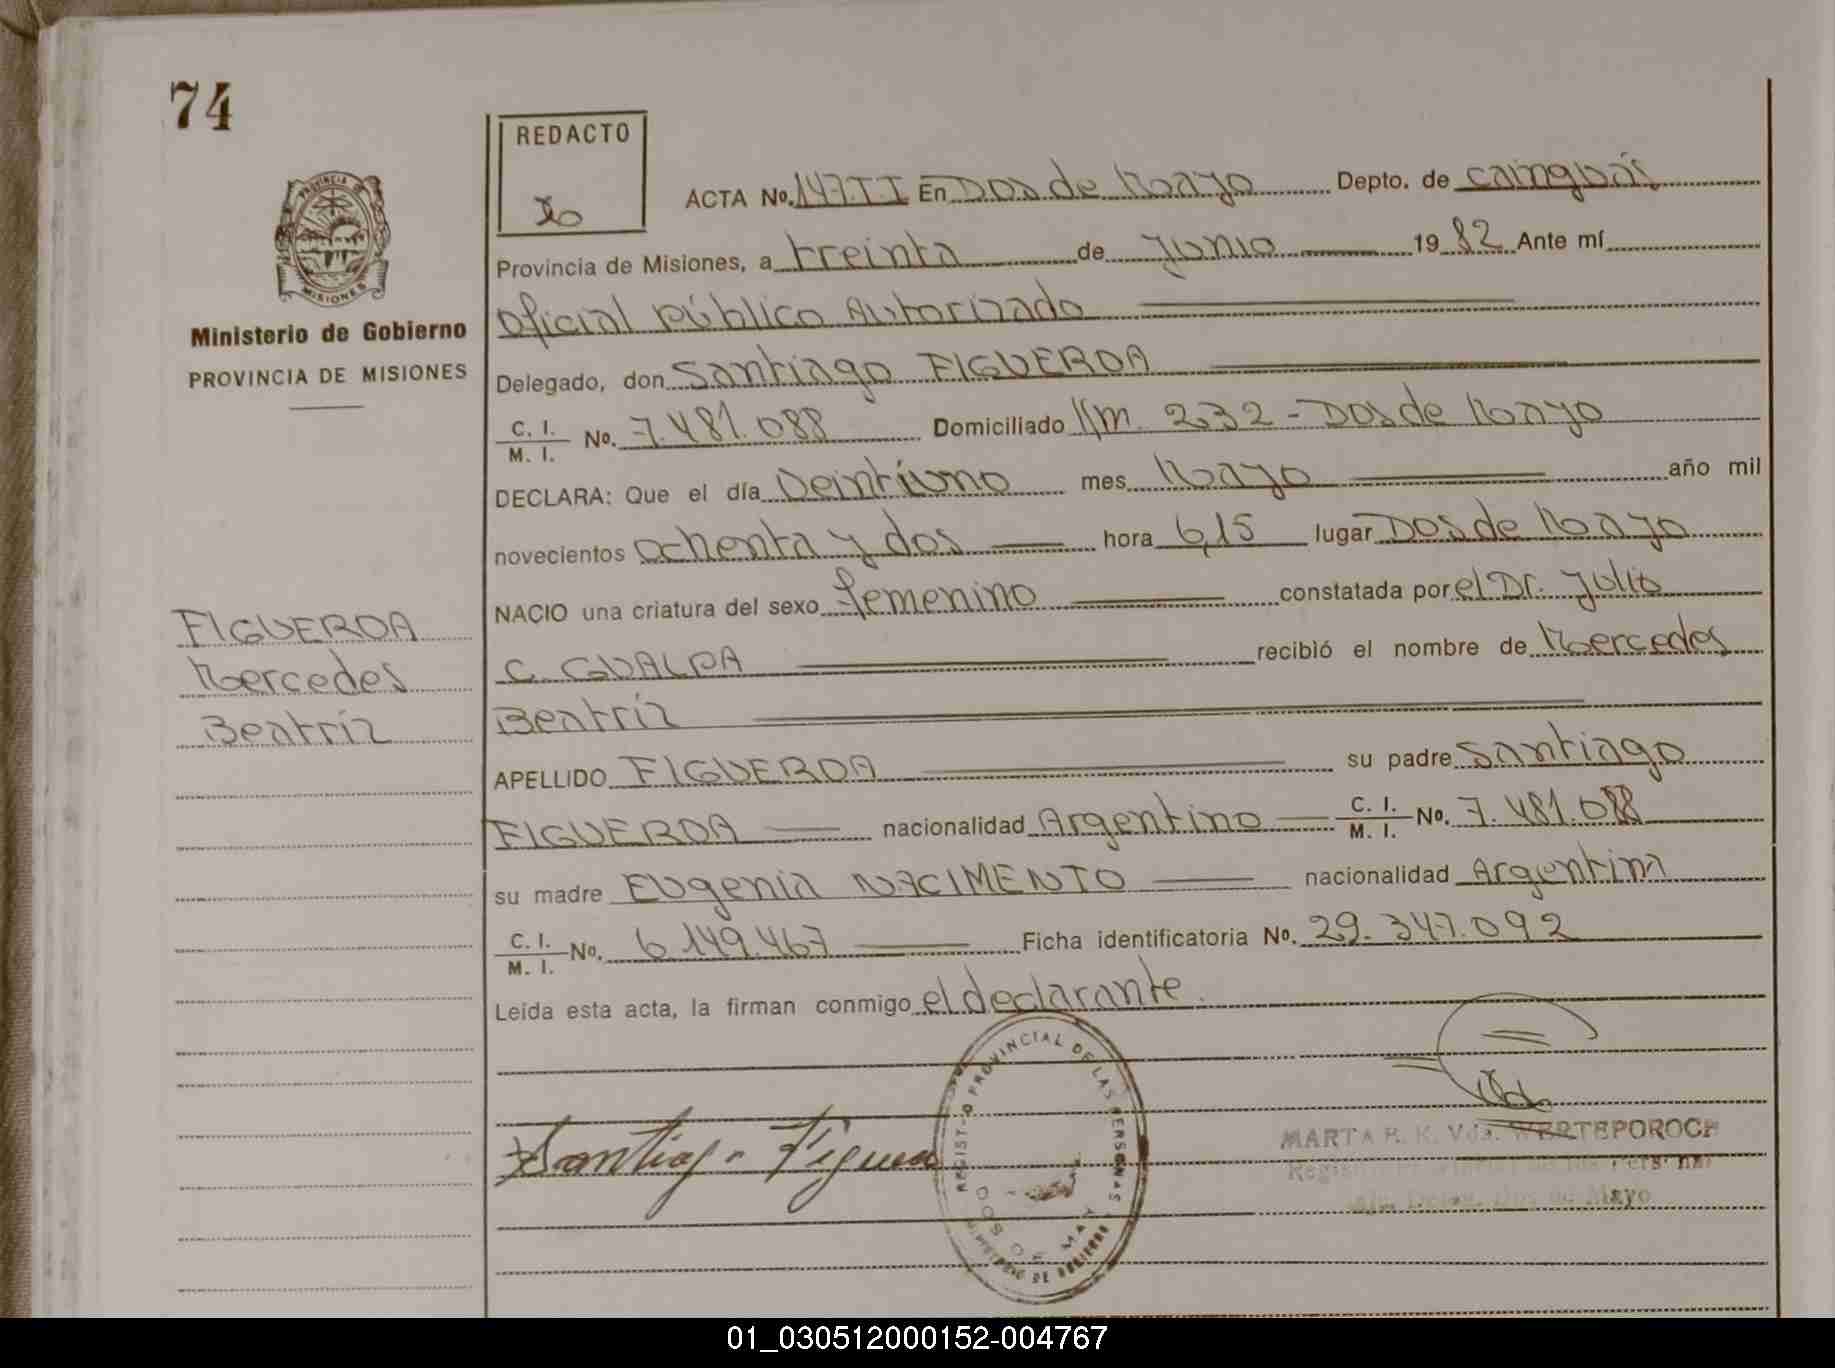 74
REDACTO
PROVINCIA DE
MISIONES
Ministerio de Gobierno
PROVINCIA DE MISIONES
ACTA No. 147.T.I En Dos de Mayo Depto. de Cainguás
Provincia de Misiones, a treinta de Junio 1982 Ante mí
Oficial Público Autorizado
Delegado, don Santiago FIGUEROA
C. I. / M. I. No. 7.481.088 Domiciliado Km. 232 - Dos de Mayo
DECLARA: Que el día Veintiuno mes Mayo año mil
novecientos ochenta y dos hora 6,15 lugar Dos de Mayo
NACIO una criatura del sexo femenino constatada por el Dr. Julio
C. GUALPA recibió el nombre de Mercedes
Beatríz
APELLIDO FIGUEROA su padre Santiago
FIGUEROA nacionalidad Argentino C. I. / M. I. No. 7.481.088
su madre Eugenia NACIMENTO nacionalidad Argentina
C. I. / M. I. No. 6.149.467 Ficha identificatoria No. 29.347.092
Leída esta acta, la firman conmigo el declarante.
FIGUEROA
Mercedes
Beatríz
Santiago Figueroa
REGISTRO PROVINCIAL DE LAS PERSONAS
DOS DE MAYO
MINISTERIO DE GOBIERNO
MARTA R. K. Vda. WERTEPOROCH
de las Personas
Dos de Mayo
01_030512000152-004767